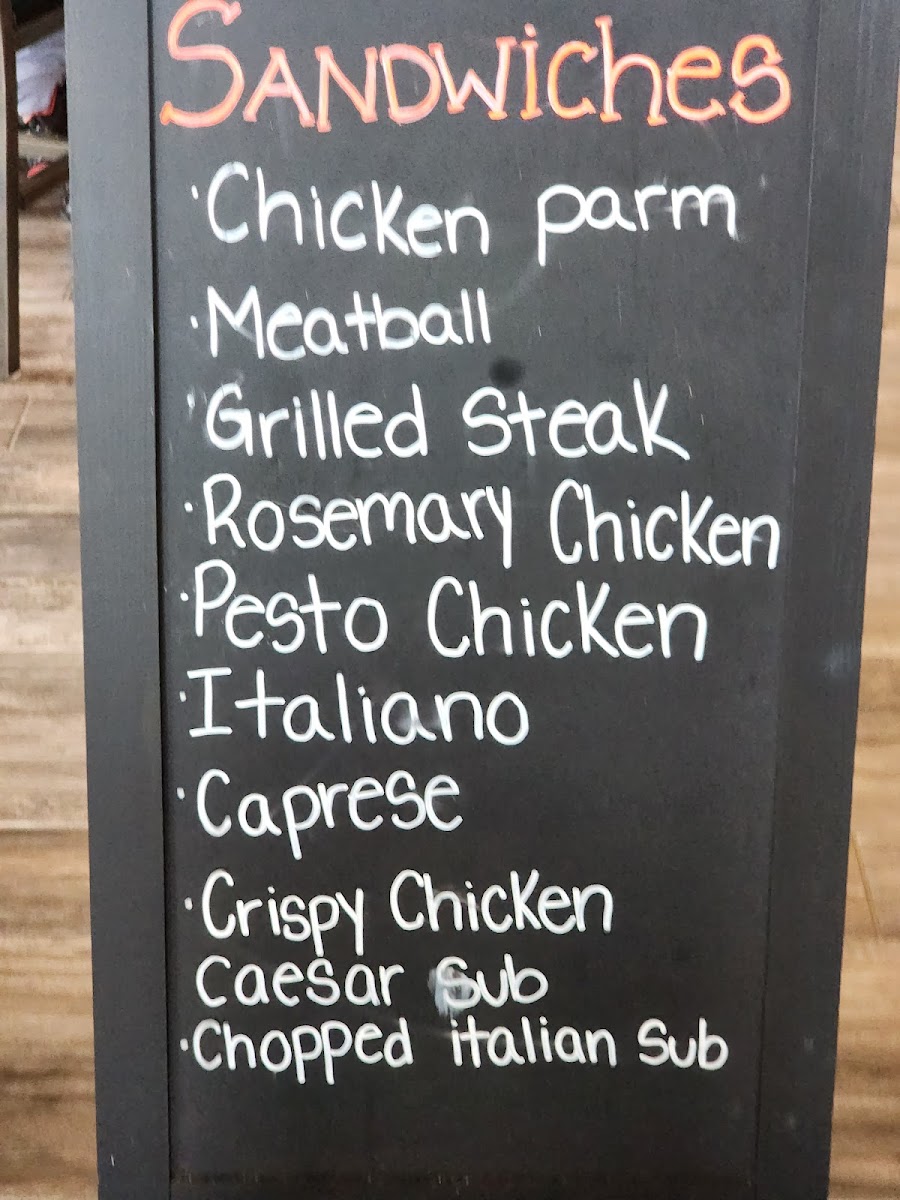 SANDWiches
·Chicken parm
·Meatball
·Grilled Steak
·Rosemary Chicken
·Pesto Chicken
·Italiano
·Caprese
·Crispy Chicken
Caesar Sub
·Chopped italian Sub